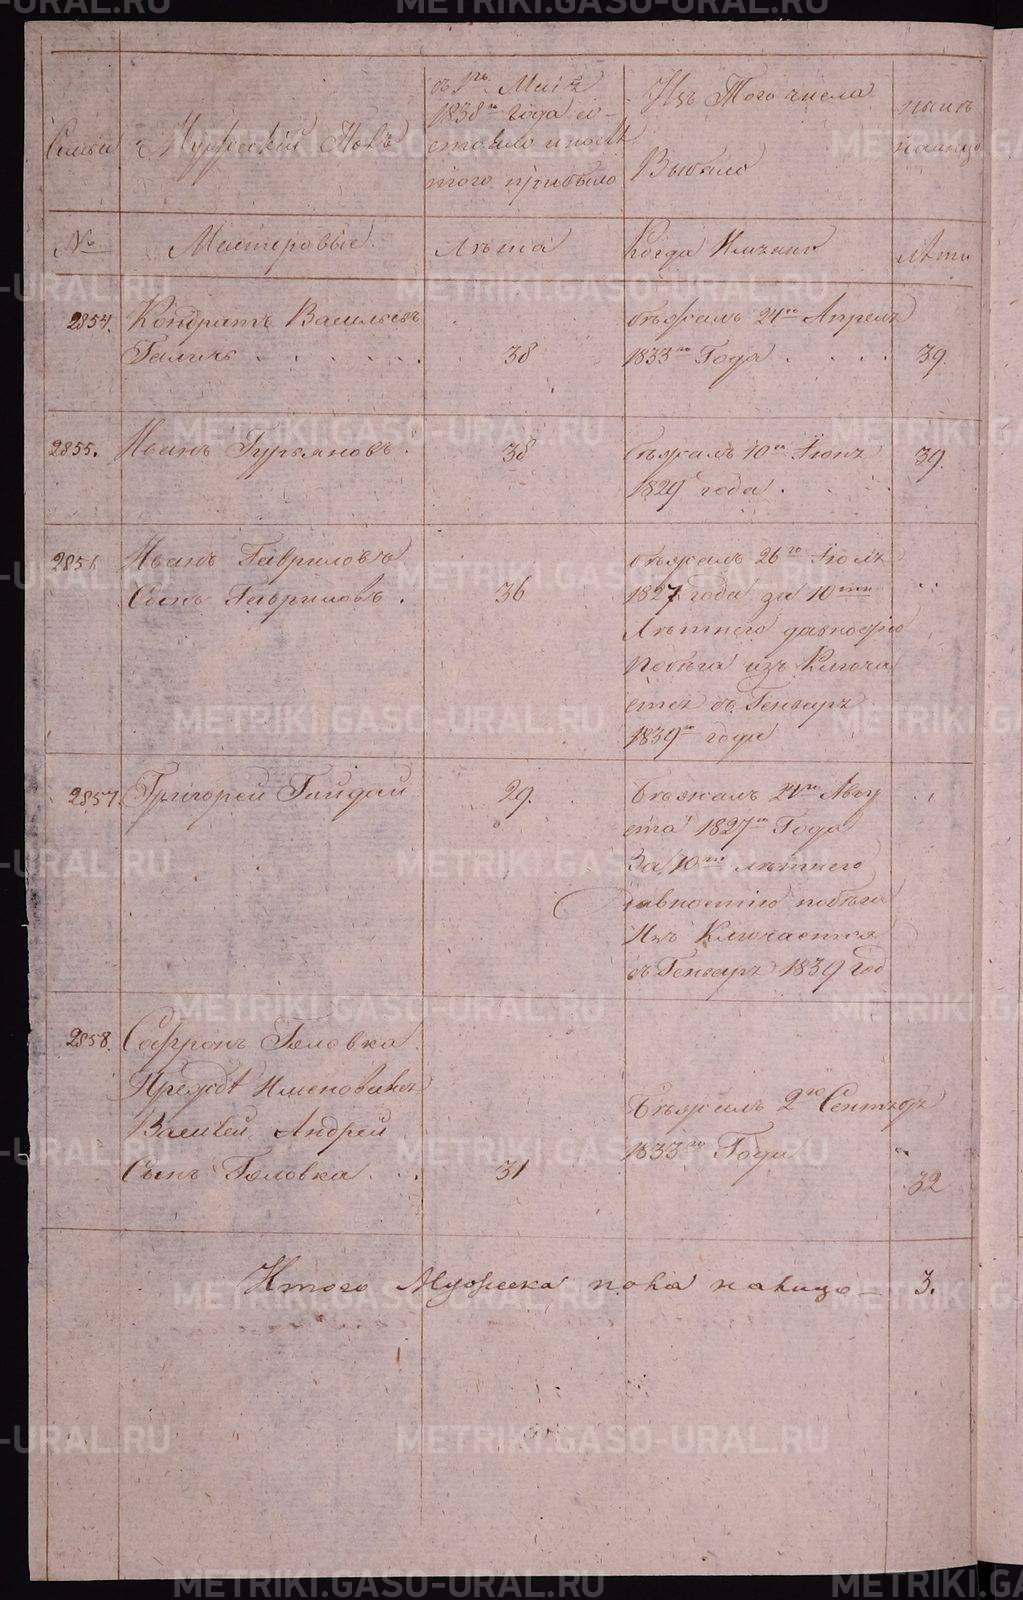 Семьи
Мужескій Полъ
съ 1го Маія
1838го года со-
стояло и послѣ
того прибыло
Изъ Того числа
Выбыло
нынѣ
налицо
№
Мастеровые
Лѣта
Когда Имянно
Лѣта
2854.
Кондратъ Васильевъ
Галичь
38
бѣжалъ 24го Апреля
1833го Года
39.
2855.
Иванъ Гурьяновъ.
38
бѣжалъ 10го Іюня
1829 года
39.
2856
Иванъ Гавриловъ
Сынъ Гавриловъ.
36
бѣжалъ 26го Іюля
1827 года за 10ти
Лѣтнею давностію
побѣга изъ Ключа
ется въ Генваря
1839го года
2857.
Григорей Гайдай
29.
Бѣжалъ 24го Авгу
ста 1827го Года
За 10ти лѣтнею
давностію побѣга
Изъ Ключается
въ Генваря 1839 год
2858.
Сафронъ Головка
Прежде Именовался
Василей Андрей
Сынъ Головка
31
Бѣжалъ 2го Сентября
1833го Года
32
Итого Мужеска пола налицо — 3.
METRIKI.GASO-URAL.RU